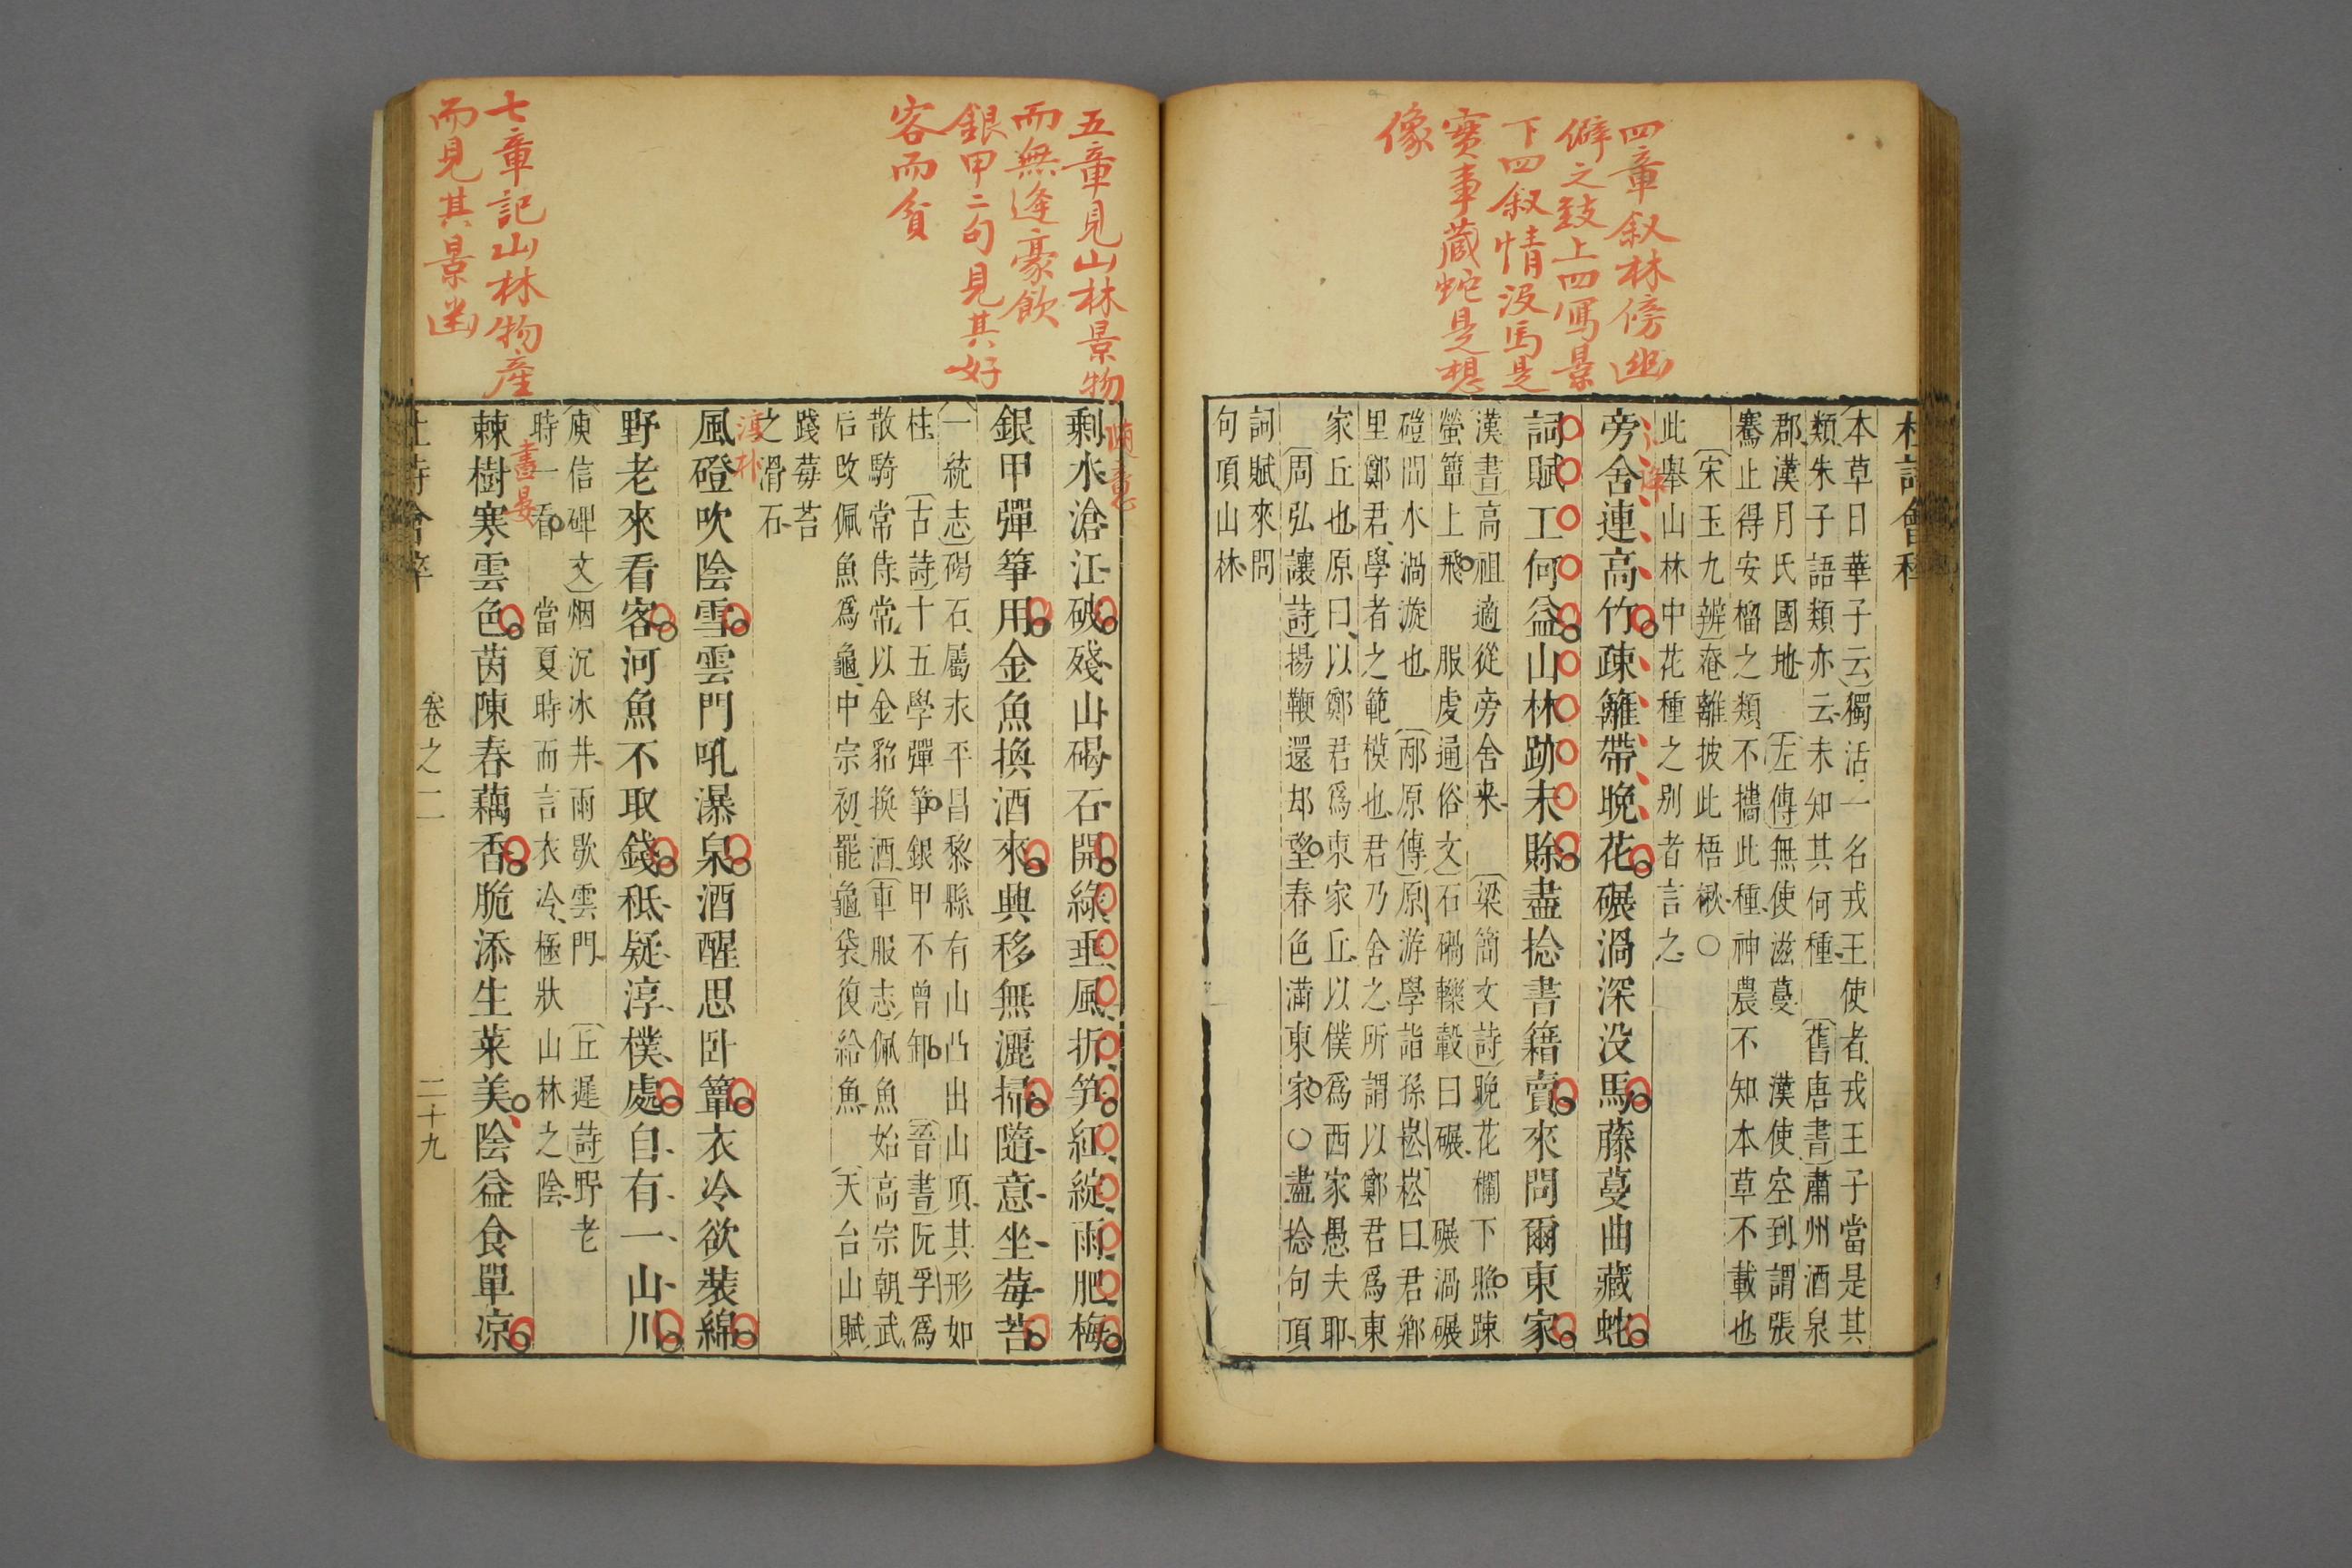 四章叙林傍幽
僻之致上四寫景
下四叙情沒馬是
實事藏蛇是想
像
杜詩會稡
本草日華子云獨活一名戎王使者戎王子當是其
類朱子語類亦云未知其何種 舊唐書肅州酒泉
郡漢月氏國地 左傳無使滋蔓 漢使空到謂張
騫止得安榴之類不攜此種神農不知本草不載也
宋玉九辨菴離披此梧楸○
此舉山林中花種之别者言之
旁舍連高竹疎籬帶晚花碾渦深没馬藤蔓曲藏蛇
詞賦工何益山林跡未賒盡捻書籍賣來問爾東家
漢書高祖適從旁舍来 梁簡文詩晚花欄下照踈
螢簟上飛 服虔通俗文石碢轢轂曰碾 碾渦碾
磑間水渦漩也 邴原傳原游學詣孫崧崧曰君鄉
里鄭君學者之範模也君乃舍之所謂以鄭君爲東
家丘也原曰以鄭君爲東家丘以僕爲西家愚夫耶
周弘讓詩揚鞭還却望春色滿東家○盡捻句頂
詞賦來問
句頂山林
五章見山林景物
而無逢豪飲
銀甲二句見其好
客而貧
隨意
剩水滄江破殘山碣石開綠垂風折笋紅綻雨肥梅
銀甲彈箏用金魚換酒來興移無灑掃隨意坐莓苔
一統志碣石屬永平昌黎縣有山凸出山頂其形如
柱 古詩十五學彈箏銀甲不曾卸 晉書阮孚爲
散騎常侍常以金貂換酒 車服志佩魚始高宗朝武
后改佩魚爲龜中宗初罷龜袋復給魚 天台山賦
踐莓苔
之滑石
淳朴
風磴吹陰雪雲門吼瀑泉酒醒思卧簟衣冷欲裝綿
野老來看客河魚不取錢秪疑淳樸處自有一山川
庾信碑文烟沉冰井雨歇雲門 丘遲詩野老
時一看 當夏時而言衣冷極狀山林之陰
七章記山林物產
而見其景幽
棘樹寒雲色茵陳春藕香脆添生菜美陰益食單凉
卷之二
二十九